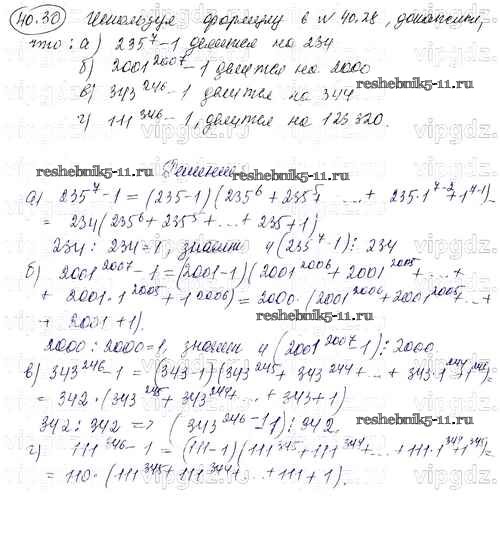 40.30 Используя формулу в №40.28, докажем,
что: а) 235⁷-1 делится на 234
б) 2001²⁰⁰⁷-1 делится на 2000
в) 343²⁴⁶-1 делится на 344
г) 111³⁴⁶-1, делится на 12 320.
reshebnik5-11.ru
Решение
reshebnik5-11.ru
а) 235⁷-1 = (235-1)(235⁶+235⁵+ ... + 235·1⁷⁻²+1⁷⁻¹)=
= 234(235⁶+235⁵+...+235+1)
234 : 234=1, значит и (235⁷-1) ⋮ 234
б) 2001²⁰⁰⁷-1 = (2001-1)(2001²⁰⁰⁶+2001²⁰⁰⁵+...+
+ 2001·1²⁰⁰⁵+1²⁰⁰⁶) = 2000·(2001²⁰⁰⁶+2001²⁰⁰⁵+...+
+ 2001+1).
reshebnik5-11.ru
2000 : 2000=1, значит и (2001²⁰⁰⁷-1) ⋮ 2000.
в) 343²⁴⁶-1 = (343-1)(343²⁴⁵+343²⁴⁴+...+343·1²⁴⁴+1²⁴⁵)=
= 342·(343²⁴⁵+343²⁴⁴+...+343+1)
342 : 342 => (343²⁴⁶-1) ⋮ 342.
reshebnik5-11.ru
г) 111³⁴⁶-1 = (111-1)(111³⁴⁵+111³⁴⁴+...+111·1³⁴⁴+1³⁴⁵)=
= 110·(111³⁴⁵+111³⁴⁴+...+111+1).
vipgdz.